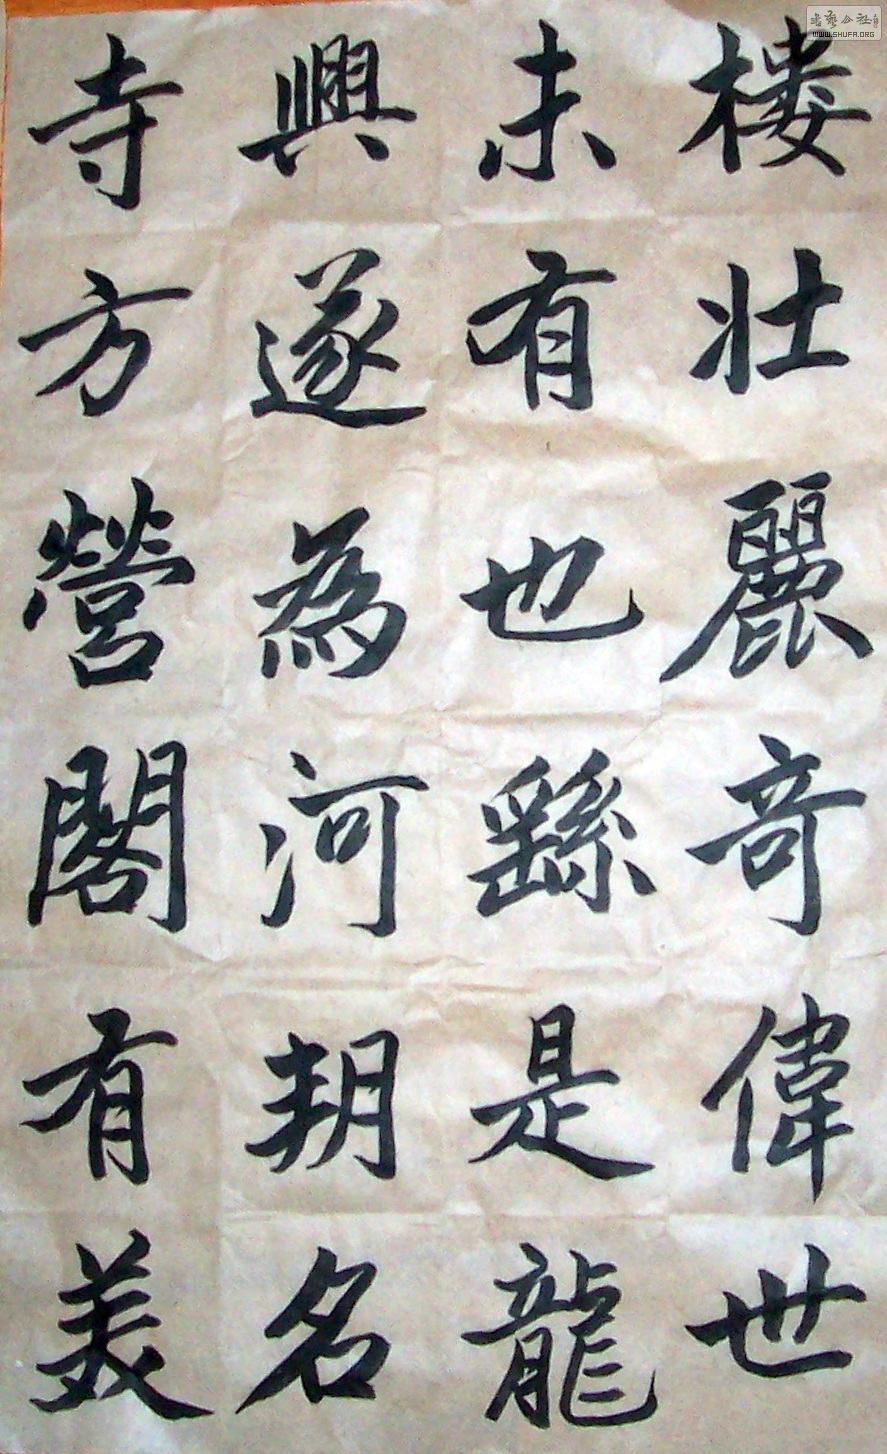 楼壯麗奇偉世
未有也繇是龍
興遂為河朔名
寺方營閣有美
書藝公社
WWW.SHUFA.ORG